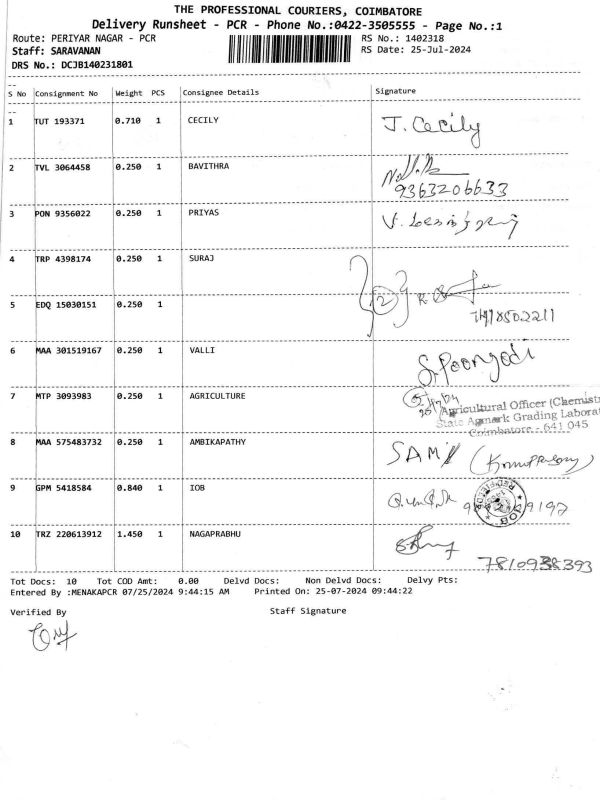 THE PROFESSIONAL COURIERS, COIMBATORE
Delivery Runsheet - PCR - Phone No.:0422-3505555 - Page No.:1
Route: PERIYAR NAGAR - PCR
RS No.: 1402318
Staff: SARAVANAN
RS Date: 25-Jul-2024
DRS No.: DCJB140231801
S No Consignment No Weight PCS Consignee Details Signature
1 TUT 193371 0.710 1 CECILY J. Cecily
2 TVL 3064458 0.250 1 BAVITHRA
9363206633
3 PON 9356022 0.250 1 PRIYAS
4 TRP 4398174 0.250 1 SURAJ
2
5 EDQ 15030151 0.250 1
6 MAA 301519167 0.250 1 VALLI S. Poongodi
7 MTP 3093983 0.250 1 AGRICULTURE
Agricultural Officer (Chemist
State Agmark Grading Laborat
Coimbatore - 641 045
8 MAA 575483732 0.250 1 AMBIKAPATHY
9 GPM 5418584 0.840 1 IOB
IOB
10 TRZ 220613912 1.450 1 NAGAPRABHU
7810938393
Tot Docs: 10 Tot COD Amt: 0.00 Delvd Docs: Non Delvd Docs: Delvy Pts:
Entered By :MENAKAPCR 07/25/2024 9:44:15 AM Printed On: 25-07-2024 09:44:22
Verified By Staff Signature